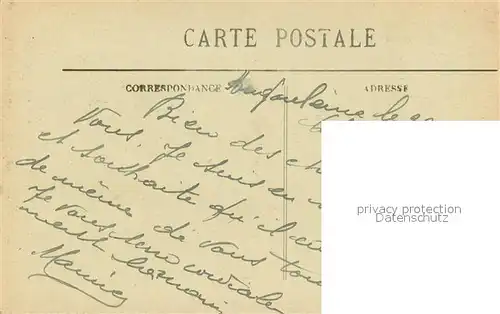 CARTE POSTALE
CORRESPONDANCE
ADRESSE
Angoulême le
Bien des
Vous. Je suis en
et souhaite qu'il
de même de vous
Je vous serre cordiale
ment la main
Maurice
privacy protection
Datenschutz